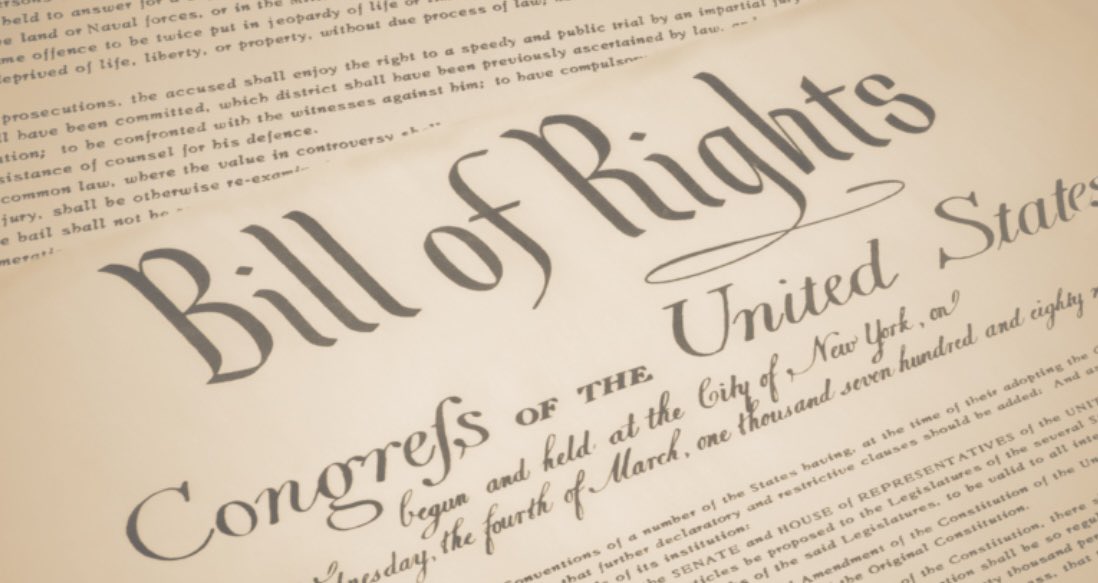 held to answer for a
land or Naval forces, or in the
offence to be twice put in jeopardy of life or
deprived of life, liberty, or property, without due process of law;
prosecutions, the accused shall enjoy the right to a speedy and public trial by an impartial jury
have been committed, which district shall have been previously ascertained by law, and
to be confronted with the witnesses against him; to have
of counsel for his defence.
common law, where the value in controversy
jury, shall be otherwise
bail shall not be
Bill of Rights
Congreſs OF THE United States
begun and held at the City of New York, on
the fourth of March, one thousand seven hundred and eighty
of a number of the States having, at the time of their adopting the
that further declaratory and restrictive clauses should be added: And
of its institution:
SENATE and HOUSE of REPRESENTATIVES of the
be proposed to the Legislatures of the several
of the said Legislatures, to be valid to all
Amendment of the Constitution of the
the Original Constitution.
of the Constitution, there
shall be so
thousand
that